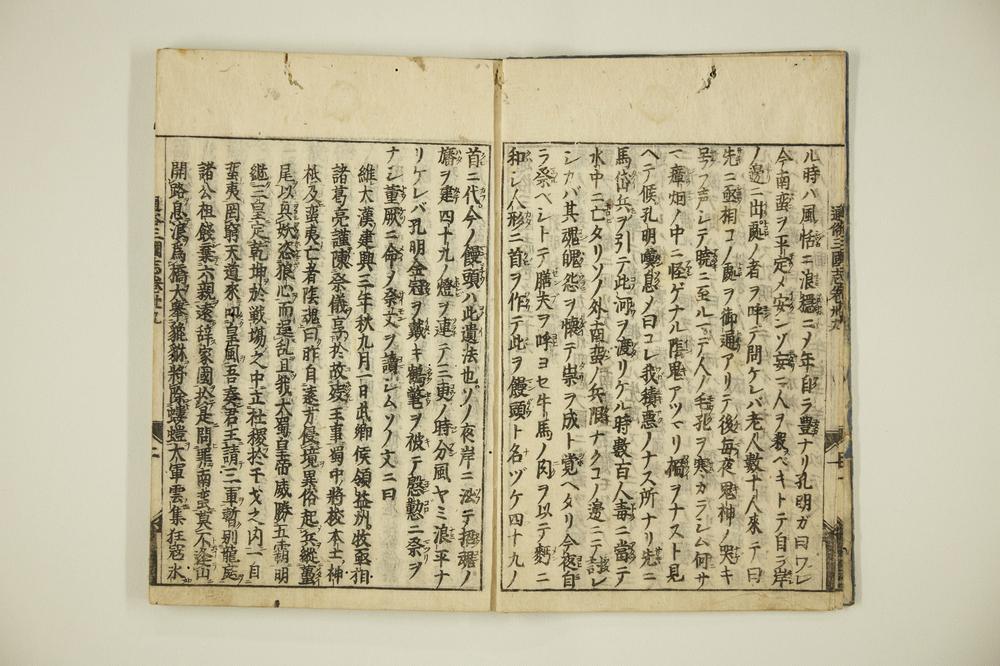 ル時ハ風恬ニ浪穩ニメ年自ラ豊ナリ孔明ガ曰ワレ
今南蛮ヲ平定メ安ンゾ妄ニ人ヲ殺ベキトテ自ラ岸
ノ邊ニ出處ノ者ヲ呼テ問ケレバ老人數十人來テ曰
先ニ丞相コノ處ヲ御通アリテ後毎夜鬼神ノ哭キ
呈フ声シテ曉ニ至ル一デ人ノ毛孔ヲ寒カラシム何サ
一瘴烟ノ中ニ怪ゲナル陰鬼アツマリ禍ヲナスト見
ヘテ候孔明嘆息メ曰コレ我積悪ノナス所ナリ先ニ
馬岱兵ヲ引テ此河ヲ渡リケル時數百人毒ニ當テ
水中ニ亡タリソノ外南蛮ノ兵限ナクコノ邊ニテ
シカバ其魂魄怨ヲ懐テ祟ヲ成ト覚ヘタリ今夜自
ラ祭ベシトテ膳夫ヲ呼ヨセ牛馬ノ肉ヲ以テ麪ニ
和シ人形ニ首ヲ作テ此ヲ饅頭ト名ヅケ四十九ノ
首ニ代今ノ饅頭ハ此遺法也ソノ夜岸ニ於テ招魂ノ
旛ヲ建四十九ノ燈ヲ連テ三更ノ時分風ヤミ浪平ナ
リケレバ孔明金冠ヲ戴キ鶴氅ヲ被テ慇懃ニ祭ヲ
ナシ董厥ニ命メ祭文ヲ讀シムソノ文ニ曰
維大漢建興三年秋九月一日武卿侯領益州牧丞相
諸葛亮謹陳祭儀享於故歿王事蜀中將校本土神
祇及蛮夷亡者陰魂曰昨自遠方侵境異俗起兵縦蠆
尾以興妖恣狼心而逞乱且我大蜀皇帝威勝五霸明
継三皇定乾坤於戦場之中立社稷於干戈之内一自
蛮夷罔窮天道來叩皇風吾奏君王請三軍暫別龍庭
諸公祖餞棄六親遠辞家國於是問罪南蛮莫不逢山
開路息浪為橋大挙貔貅將除螻蟻大軍雲集狂寇氷